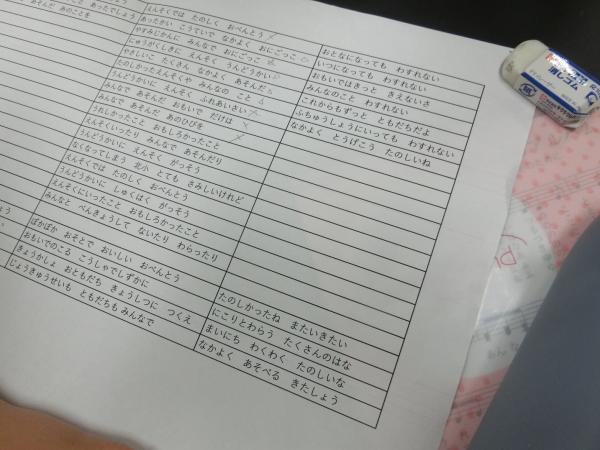 こと あったでしょう
あそんだ あのことを
えんそくでは たのしく おべんとう
あったかい こうていで なかよく おにごっこ
やすみじかんに みんなで おにごっこ
にゅうがくしきに えんそく うんどうかい
やさしいこ たくさん なかよく あそんだ
たのしかったえんそくや みんなの こと
うんどうかいに えんそく ふれあいさい
みんなで あそんだ おもいで だけは
みんなで あそんだ あのひびを
うれしかったこと おもしろかったこと
えんそくいったり みんなで あそんだり
うんどうかいに えんそく がっそう
なくなってしまう 北小 とても さみしいけれど
えんそくでは たのしく おべんとう
うんどうかいに しゅくはく がっそう
えんそくにいったこと おもしろかったこと
みんなと べんきょうして ないたり わらったり
ぱかぱか おそとで おいしい おべんとう
おもいでのこる こうしゃでしずかに
きょうかしょ おともだち きょうしつに つくえ
じょうきゅうせいも ともだちも みんなで
おとなになっても わすれない
いつになっても わすれない
おもいではきっと きえないさ
みんなのこと わすれない
これからもずっと ともだちだよ
ふちゅうしょうにいっても わすれない
なかよく とうげこう たのしいね
たのしかったね またいきたい
にこりとわらう たくさんのはな
まいにち わくわく たのしいな
なかよく あそべる きたしょう